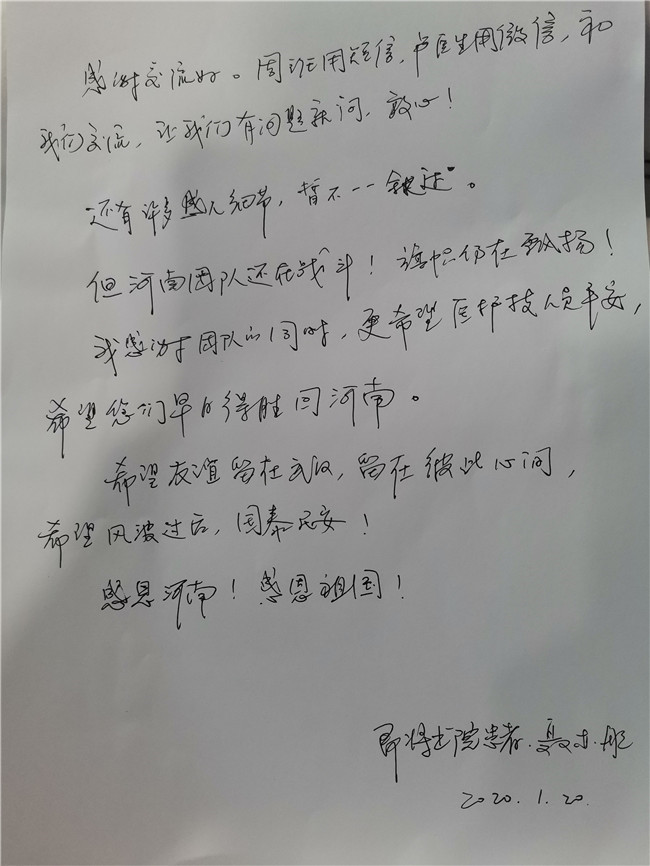 感谢交流好。周班用短信，卢医生用微信，和
我们交流，让我们有问题就问，放心！
还有许多感人细节，暂不一一叙述。
但河南团队还在战斗！旗帜仍在飘扬！
我感谢团队的同时，更希望医护技人员平安，
希望您们早日得胜回河南。
希望友谊留在武汉，留在彼此心间，
希望风波过后，国泰民安！
感恩河南！感恩祖国！
即将出院患者.聂
2020.1.20.